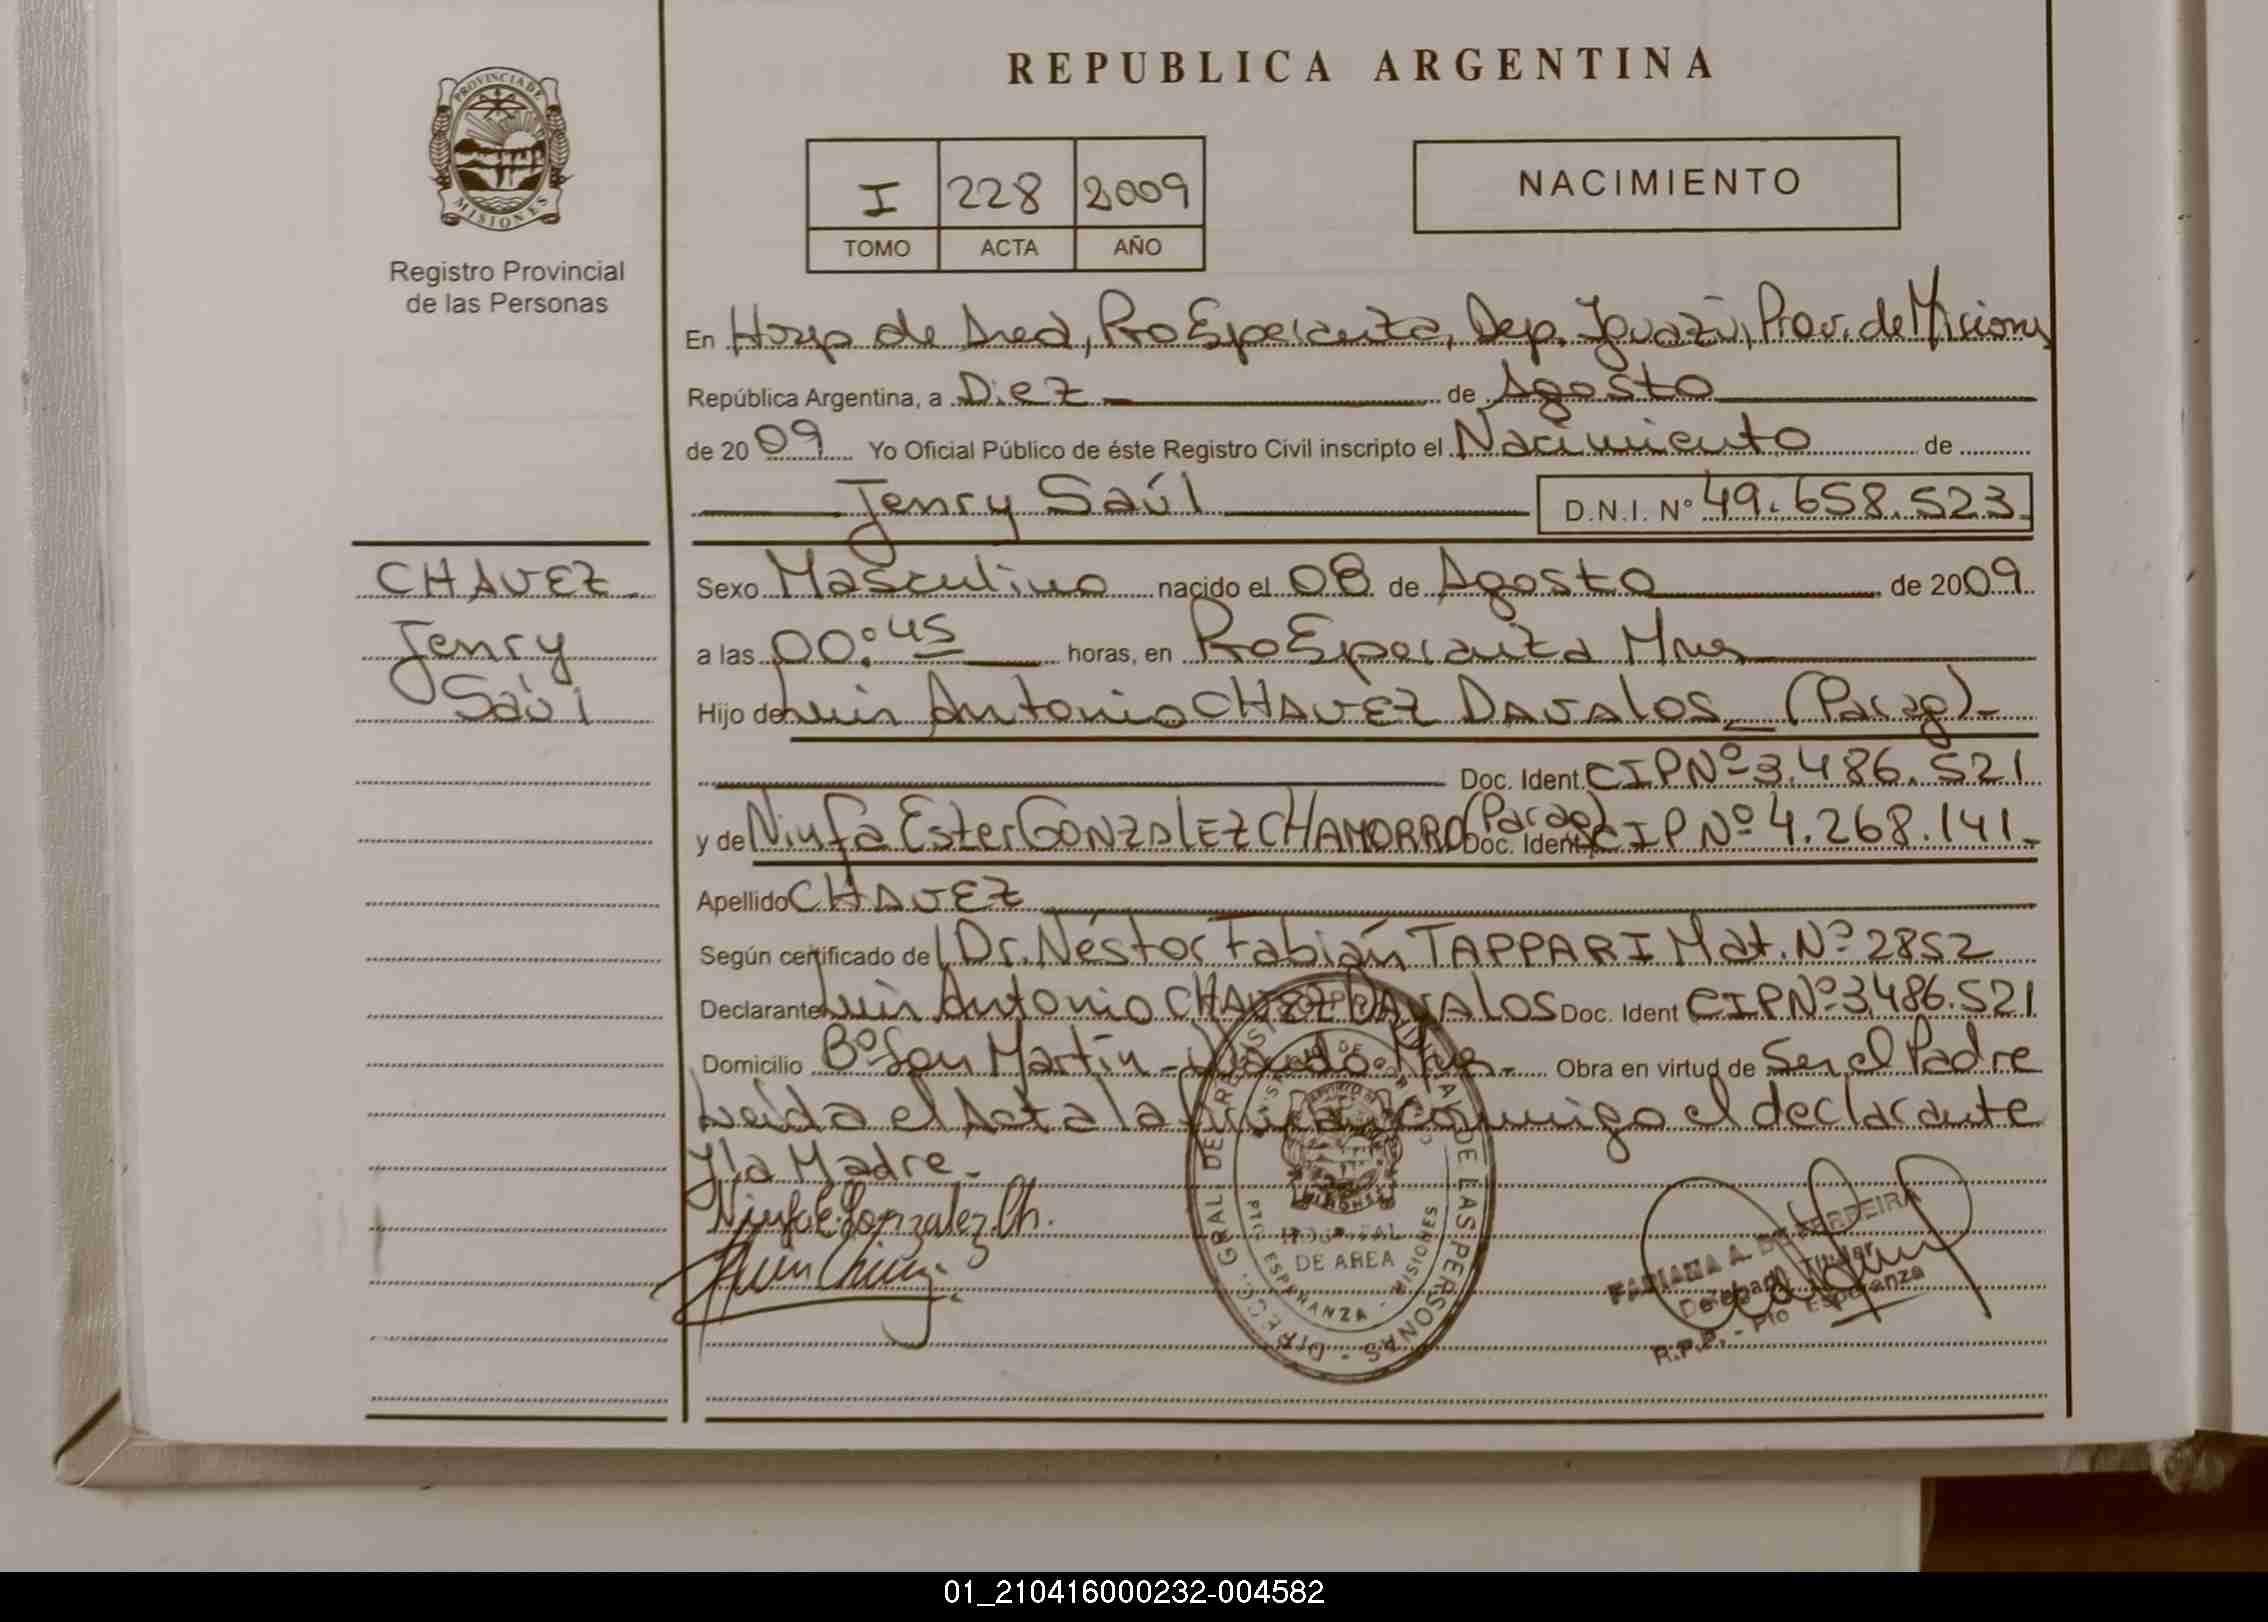 REPUBLICA ARGENTINA
PROVINCIA DE
MISIONES
Registro Provincial
de las Personas
I 228 2009
TOMO ACTA AÑO
NACIMIENTO
En Hosp de Area, Pto Esperanza, Dep. Iguazú, Prov. de Misiones
República Argentina, a Diez de Agosto
de 2009 Yo Oficial Público de éste Registro Civil inscripto el Nacimiento de
Jenry Saúl D.N.I. Nº 49.658.523.
CHAVEZ.
Jenry
Saúl
Sexo Masculino nacido el 08 de Agosto de 2009.
a las 00:45 horas, en Pto Esperanza Mnes
Hijo de Luis Antonio CHAVEZ DAVALOS (Parag).
Doc. Ident. CIP Nº 3.486.521
y de Ninfa Ester GONZALEZ CHAMORRO (Parag) Doc. Ident. CIP Nº 4.268.141.
Apellido CHAVEZ
Según certificado de Dr. Néstor Fabián TAPPARI Mat. Nº 2852
Declarante Luis Antonio CHAVEZ DAVALOS Doc. Ident CIP Nº 3.486.521
Domicilio Bº San Martín - Mnes. Obra en virtud de Ser el Padre
Leída el Acta la firman conmigo el declarante
y la Madre.
Ninfa E. Gonzalez Ch.
DIRECC. GRAL DE REGISTRO PROVINCIAL DE LAS PERSONAS
MISIONES
HOSPITAL
DE AREA
PTO ESPERANZA - MISIONES
FABIANA A. DE FERREIRA
Delegada Titular
R.P.P. - Pto Esperanza
01_210416000232-004582